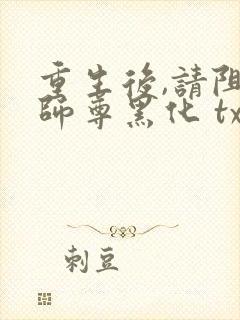 重生後,請阻
師尊黑化 tx
刺豆